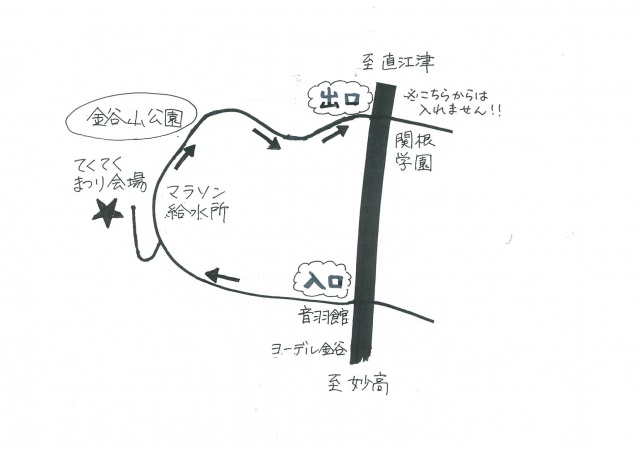 至直江津
出口
※こちらからは
入れません!!
金谷山公園
関根
学園
てくてく
まつり会場
マラソン
給水所
入口
音羽館
ヨーデル金谷
至妙高